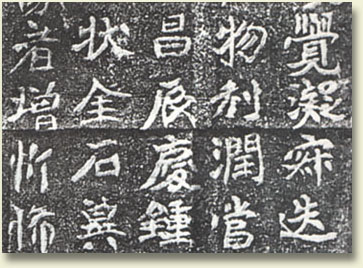 覺凝寂迭
物利潤當
昌辰慶鍾
状全石冀
者增忻